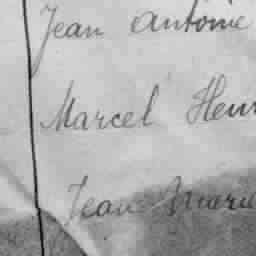 Jean Antoine
Marcel Henr
Jean